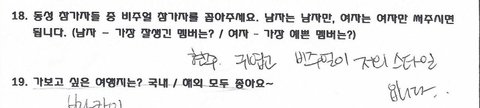 18. 동성 참가자들 중 비주얼 참가자를 꼽아주세요. 남자는 남자만, 여자는 여자만 써주시면
됩니다. (남자 - 가장 잘생긴 멤버는? / 여자 - 가장 예쁜 멤버는?)
현주 귀엽고 비주얼이 저의 스타일
입니다..
19. 가보고 싶은 여행지는? 국내 / 해외 모두 좋아요~